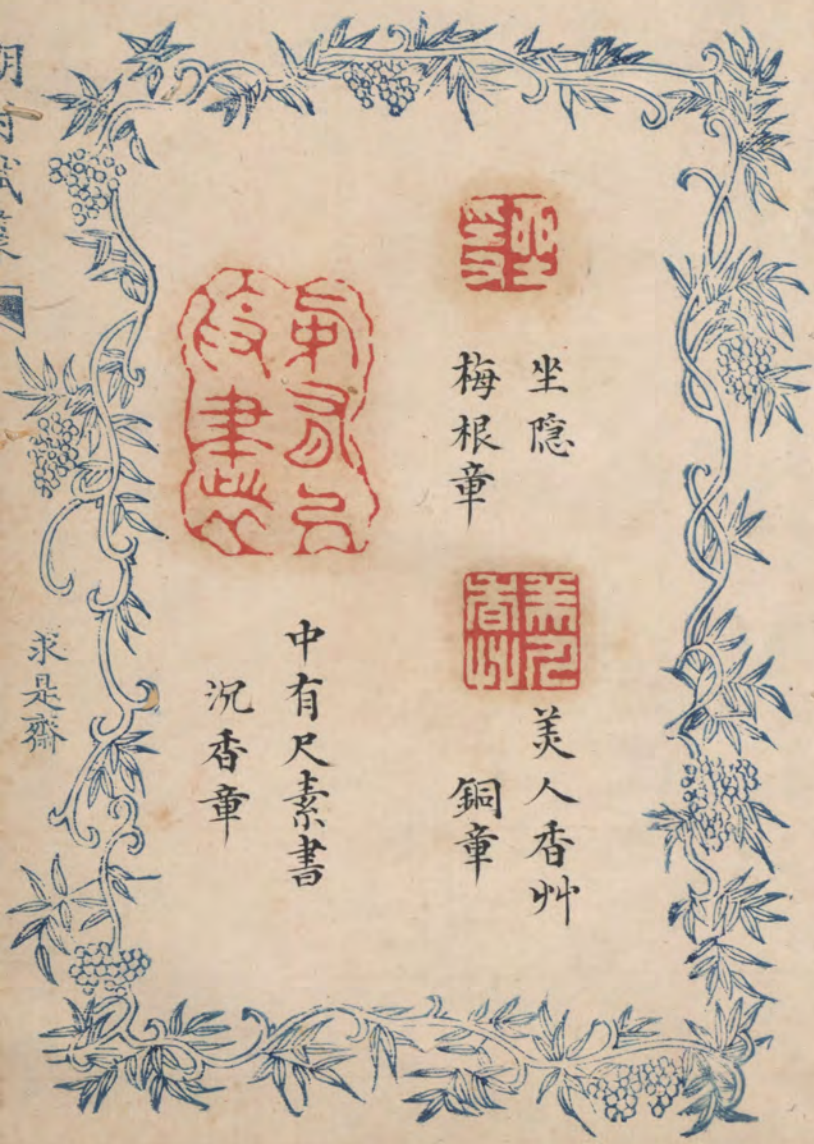 坐隠
梅根章
美人香艸
美人香艸
銅章
中有尺素書
沉香章
求是齋